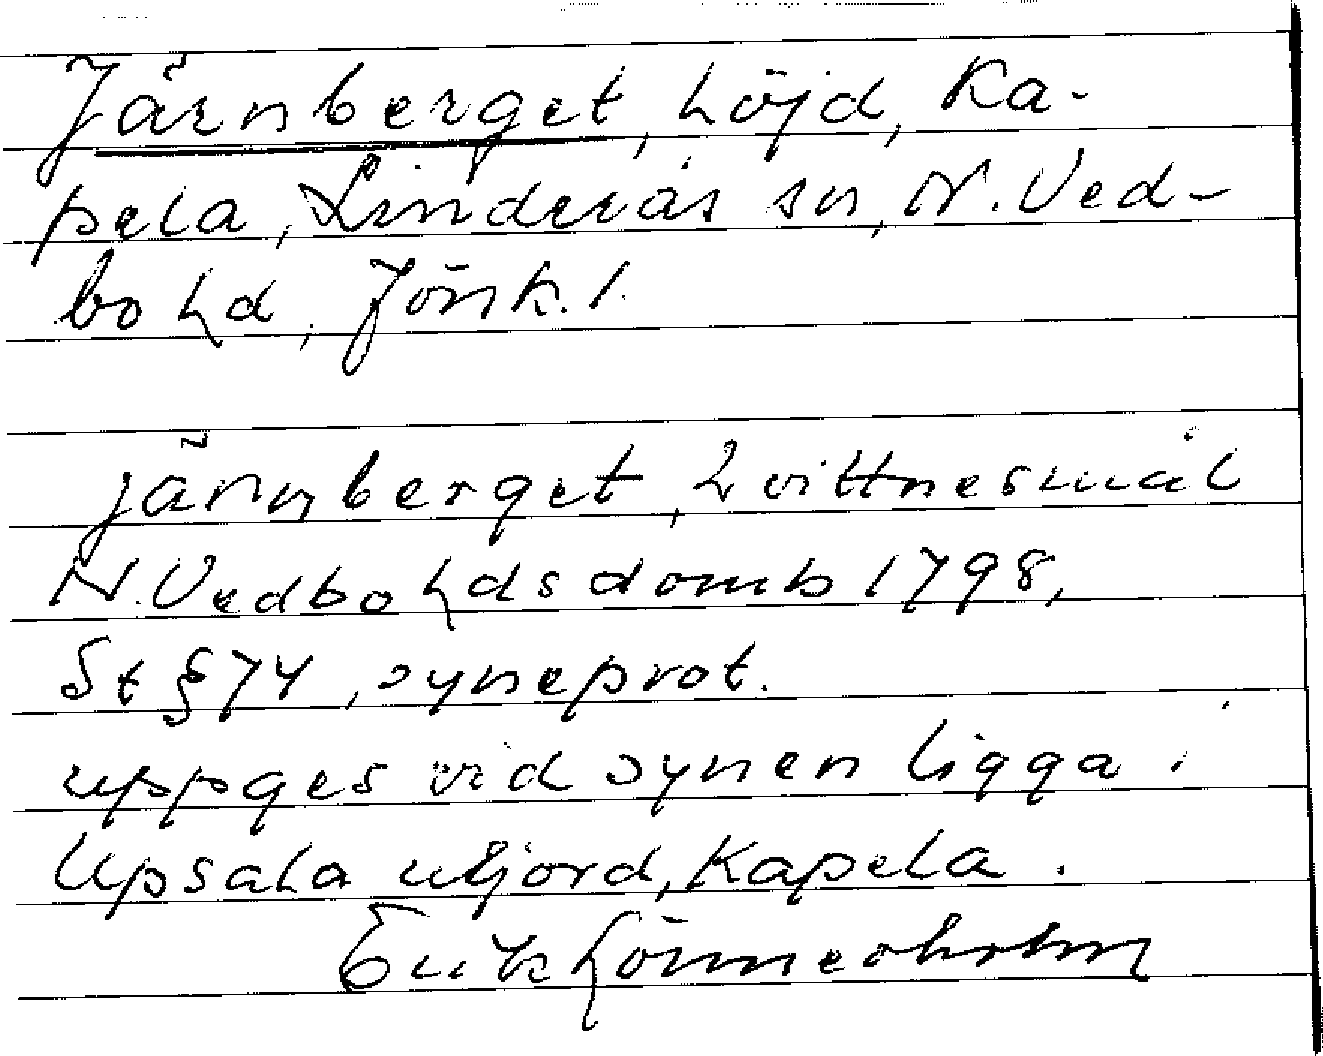 Järnberget, höjd, Ka-
pela, Linderås sn, N. Ved-
bo hd, Jönk. l.
järnberget, 2 vittnesmål
N. Vedbo hds domb 1798,
St § 74, syneprot.
uppges vid synen ligga i
Upsala utjord, Kapela.
Erik Lönnerholm